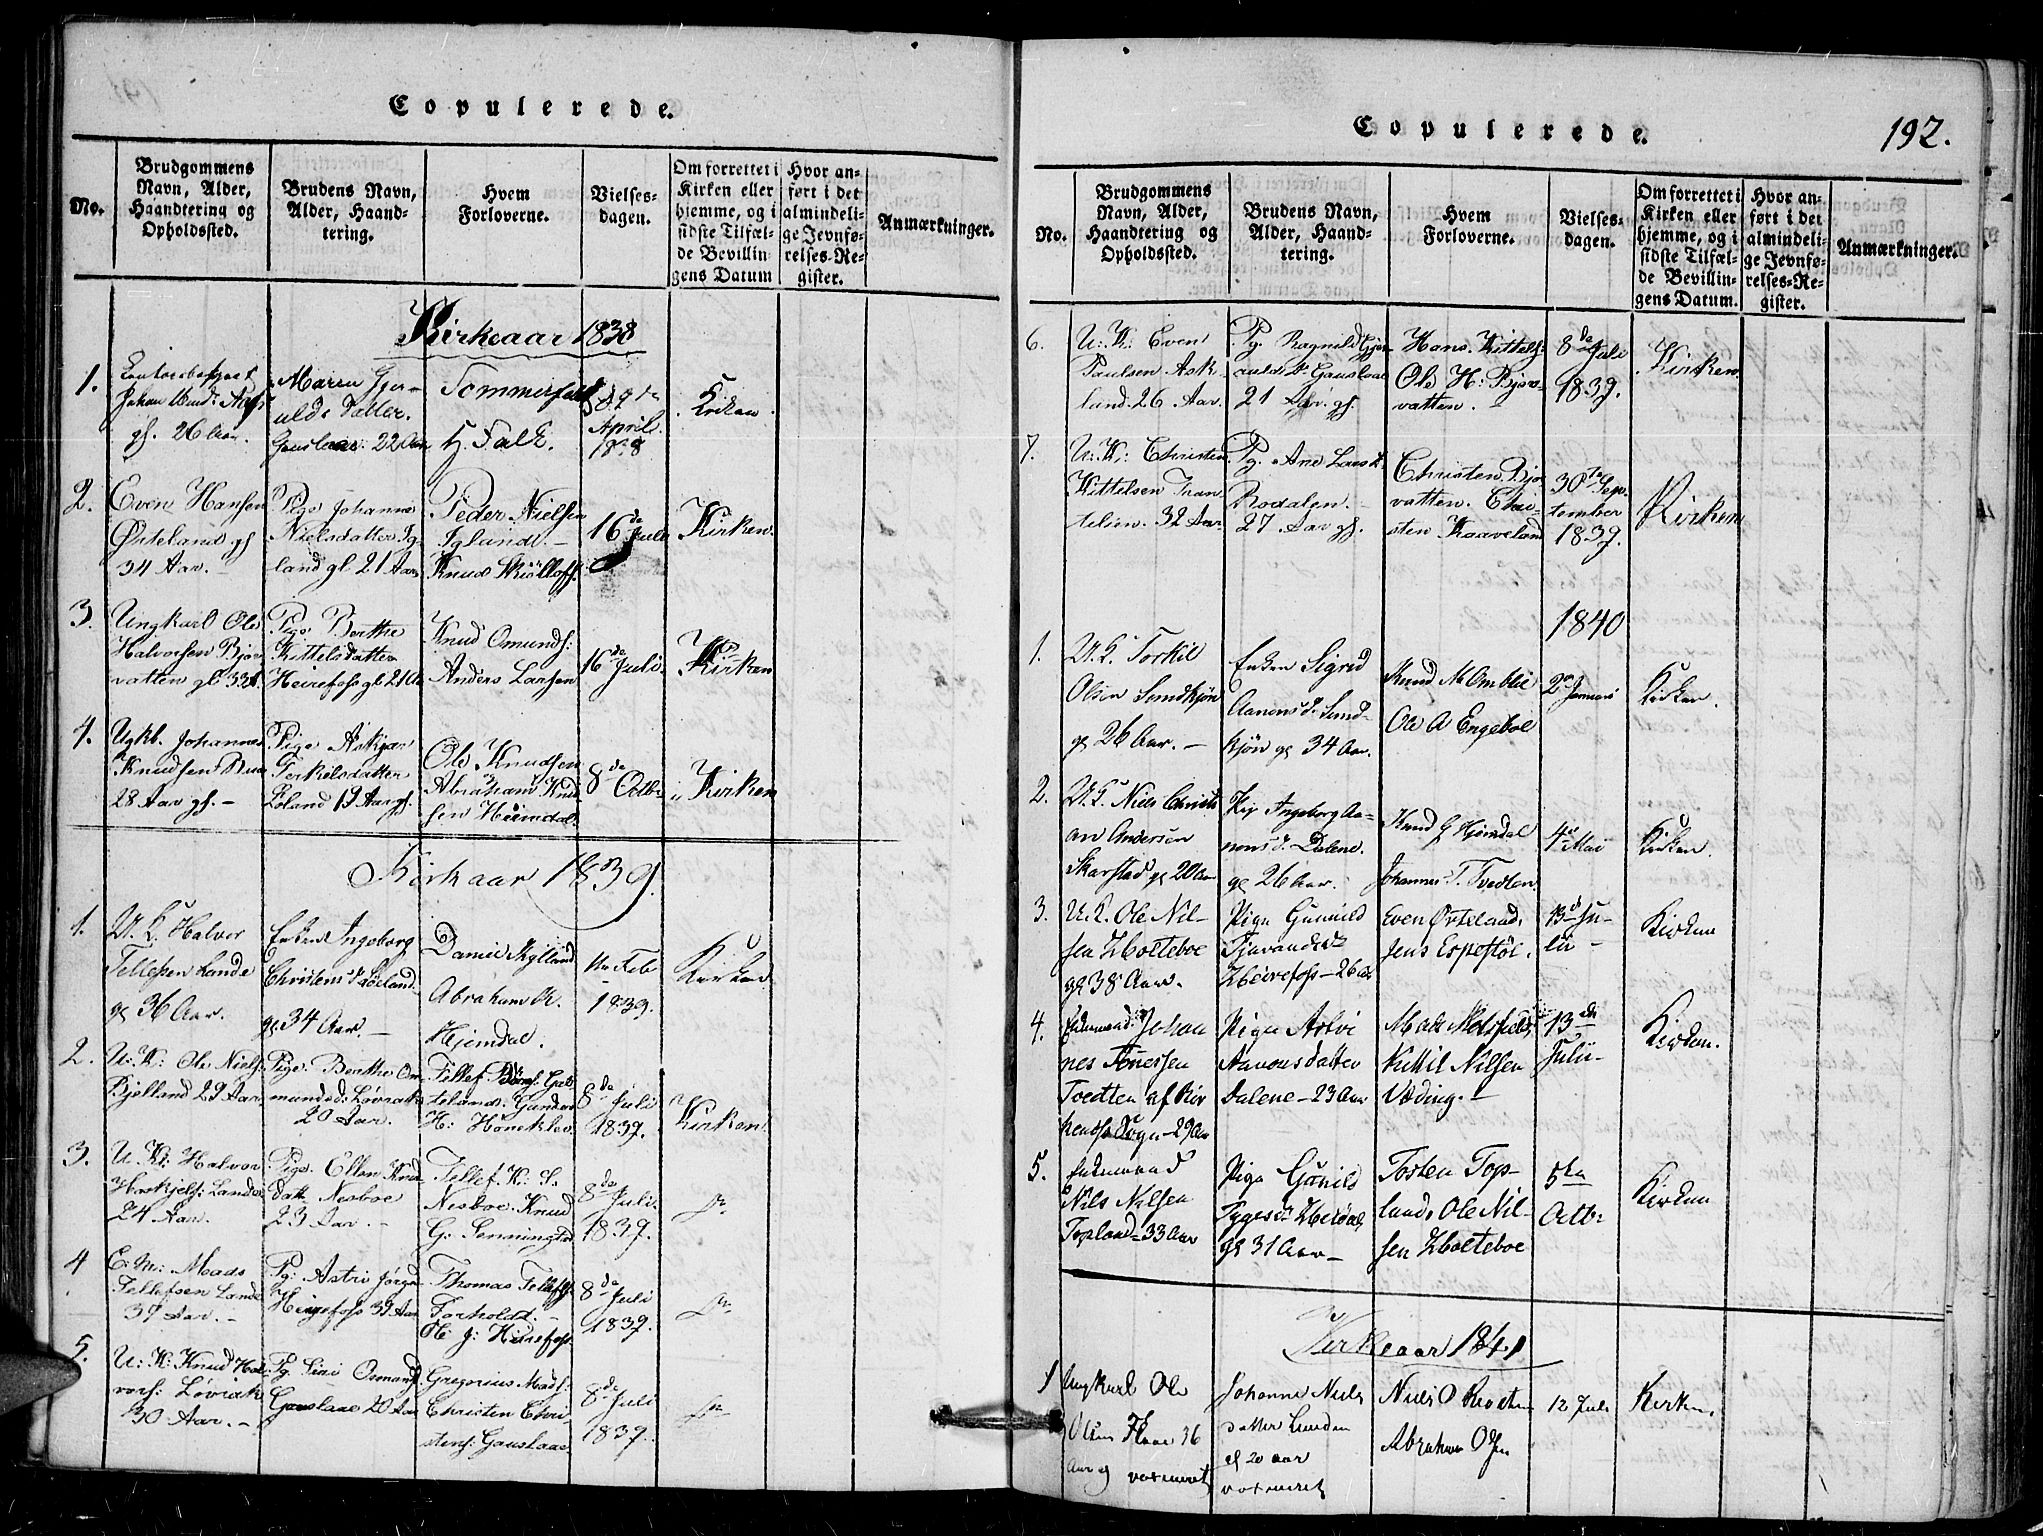 Copulerede.
No.
Brudgommens
Navn, Alder,
Haandtering og
Opholdssted.
Brudens Navn,
Alder, Haand-
tering.
Hvem
Forloverne.
Vielses-
dagen.
Om forrettet i
Kirken eller
hjemme, og i
sidste Tilfæl-
de Bevillin-
gens Datum
Hvor an-
ført i det
almindeli-
ge Jevnfø-
relses-Re-
gister.
Anmærkninger.
Kirkeaar 1838
1.
Johan
gf. 26 Aar.
Maren Gjer-
ulds Datter.
Gauslaae 22 Aar
Sommerfeldt
H. Falk.
April.
1838
Kirken.
2.
Even Hansen
Østeland gf
34 Aar.
Pige Johanne
Nielsdatter Ig-
land gf 21 Aar
Peder Nielsen
Iglande.
Knud
16de Juli
Kirken.
3.
Ungkarl Ole
Halvorsen Bjor-
vatten gf 33 A.
Pige Berthe
Kittelsdatter
Heirefoss gf 21 Aar
Knud Omunds:
Anders Larsen
16de Juli.
Kirken
4.
Ugkl. Johannes
Knudsen
28 Aar gf. -
Pige Askjær
Terkelsdatter
Loland 19 Aar gf.
Ole Knudsen
Abraham Knud-
sen Heimdal.
8de Octbr
Kirken
Kirkaar 1839.
1.
U. K. Halvor
Tellefsen Lande
gf 36 Aar.
Enken Ingeborg
Christensd.
gf 34 Aar -
Daniel Rylland
Abraham K.
Hjemdal.
11te Feb
1839.
Kirken
2.
U: K: Ole Niels:
Bjelland 29 Aar.
Pige. Berthe Om-
mundsd: Løvrak
20 Aar.
Tellef
teland. Gunder
H: Honeklev.
8de Juli
1839.
Kirken.
3.
U: K: Halvor
Lande
24 Aar.
Pige. Ellen Knud-
datt. Nesboe
23 Aar. -
Tellef. K: S.
Nesboe. Knud
G. Senningsd
8de Juli
1839.
4
E: M: Mads
Tellefsen Lande
37 Aar. -
Pg: Astri Jørgs
Heirefoss 32 Aar
Thomas Tellefs:
Forholdt. -
O: J: Heirefoss.
8de Juli
1839.
5.
U: K: Knud Hal-
vors: Løvrak
30 Aar. -
Pg. Siri Osmunds.
Gauslaae 20 Aar
Gregorius Mads:
Christen Chri-
stens: Gauslaae
8de Juli
1839.
Copulerede.
192.
No.
Brudgommens
Navn, Alder,
Haandtering og
Opholdssted.
Brudens Navn,
Alder, Haand-
tering.
Hvem
Forloverne.
Vielses-
dagen.
Om forrettet i
Kirken eller
hjemme, og i
sidste Tilfæl-
de Bevillin-
gens Datum.
Hvor an-
ført i det
almindeli-
ge Jevnfø-
relses-Re-
gister.
Anmærkninger.
6.
U: K: Even
Paulsen Ask-
land. 26 Aar.
Pg. Ragnild Gjer-
ulds D. Gauslaae
21 Aar. gf.
Hans Kittels:
Ole H: Bjor-
vatten. -
8de Juli
1839.
Kirken.
7.
U: K: Christen
Kittelsen Tran-
telien. 32 Aar.
Pg. Ane Larsd.
Rodalen.
27 Aar gf.
Christen Bjor-
vatten. Chri-
sten Kaaveland
30te Sep-
tember
1839.
Kirken
1840
1.
U. K. Torkil
Olsen Sundtjøn
gf 26 Aar. -
Enken Sigrid
Aanonsd. Sund-
tjøn gf 34 Aar.
Knud M Omblie
Ole A Engeboe
2de Januari
Kirken.
2.
U. K. Niels Christi-
an Andersen
Skarstad gf 20 Aar
Pig Ingeborg Aa-
nonsd. Dalene.
gf 26 Aar.
Knud G Hjemdal
Johannes T. Tvedten
4de Mai
Kirken.
3.
U. K. Ole Nil-
sen Holteboe
gf 38 Aar.
Pige Gunnild
Heirefoss - 26 Aar
Even Østeland.
Jens Espestøl.
13de Ju-
lii -
Kirken
4.
Enkemand Johan-
nes Tønnessen
Tvedten af Her-
Sogn - 29 Aar
Pige Astri
Aanonsdatter
Dalene - 23 Aar
Mads
Kittil Nilsen
Væding. -
13de
Julii -
Kirken.
5.
Enkemand
Nils Nilsen
Topland - 33 Aar
Pige Gunild
Tygesd. Heldal
gf 31 Aar -
Tosten Top-
land. Ole Nil-
sen Holteboe
5te
Octbr
Kirken
Kirkeaar 1841
1
Ungkarl Ole
Olsen Flaae 36
Aar gf vaxineret
Johanne Niels
datter Lunden
gf 20 aar
vaxineret
Niels O
Abraham Olsen
12 Juli
Kirken.